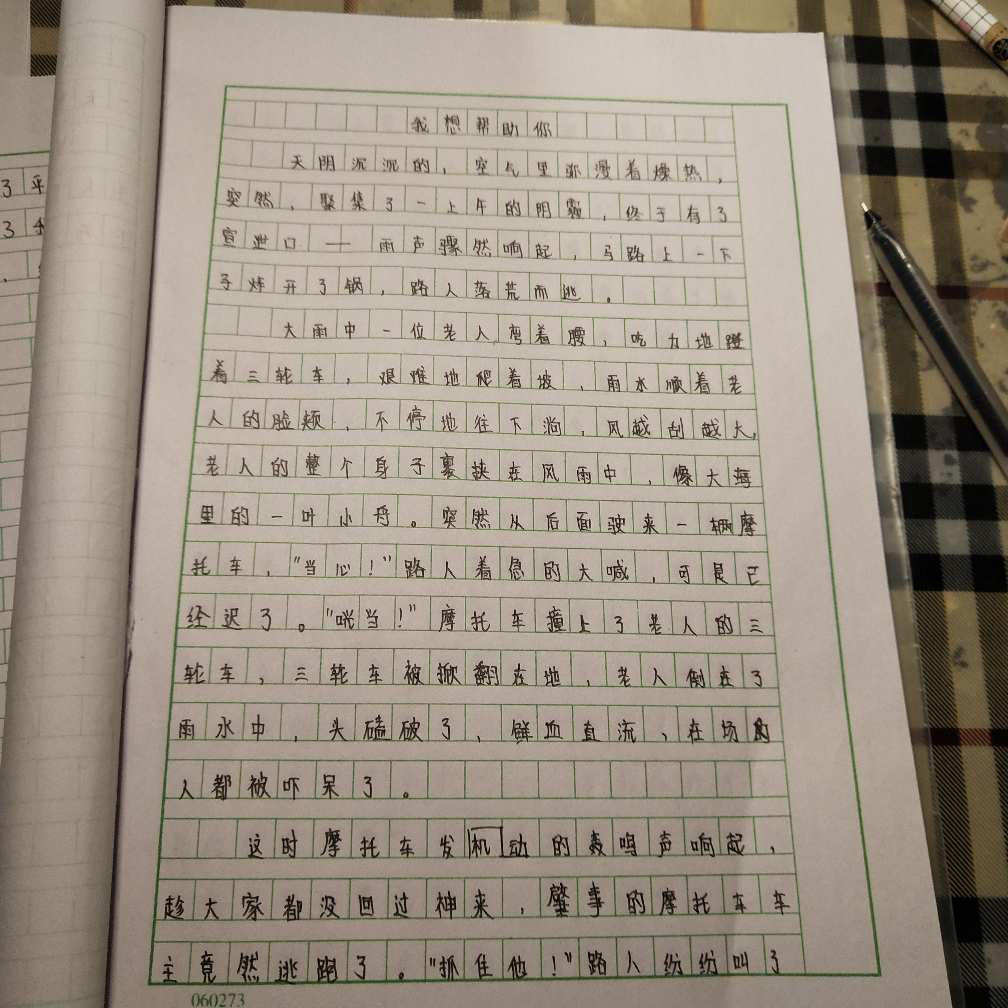 我想帮助你
天阴沉沉的，空气里弥漫着燥热，
突然，聚集了一上午的阴霾，终于有了
宣泄口——雨声骤然响起，马路上一下
子炸开了锅，路人落荒而逃。
大雨中一位老人弯着腰，吃力地蹬
着三轮车，艰难地爬着坡，雨水顺着老
人的脸颊，不停地往下淌，风越刮越大，
老人的整个身子裹挟在风雨中，像大海
里的一叶小舟。突然从后面驶来一辆摩
托车，“当心！”路人着急的大喊，可是已
经迟了。“咣当！”摩托车撞上了老人的三
轮车，三轮车被掀翻在地，老人倒在了
雨水中，头磕破了，鲜血直流，在场的
人都被吓呆了。
这时摩托车发机动的轰鸣声响起，
趁大家都没回过神来，肇事的摩托车车
主竟然逃跑了。“抓住他！”路人纷纷叫了
060273
了平
了